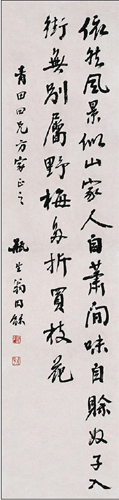 依然風景似山家人自蕭間味自賒奴子入
街無別屬野梅多折買枝花
青田四兄方家正之
瓶生翁同龢